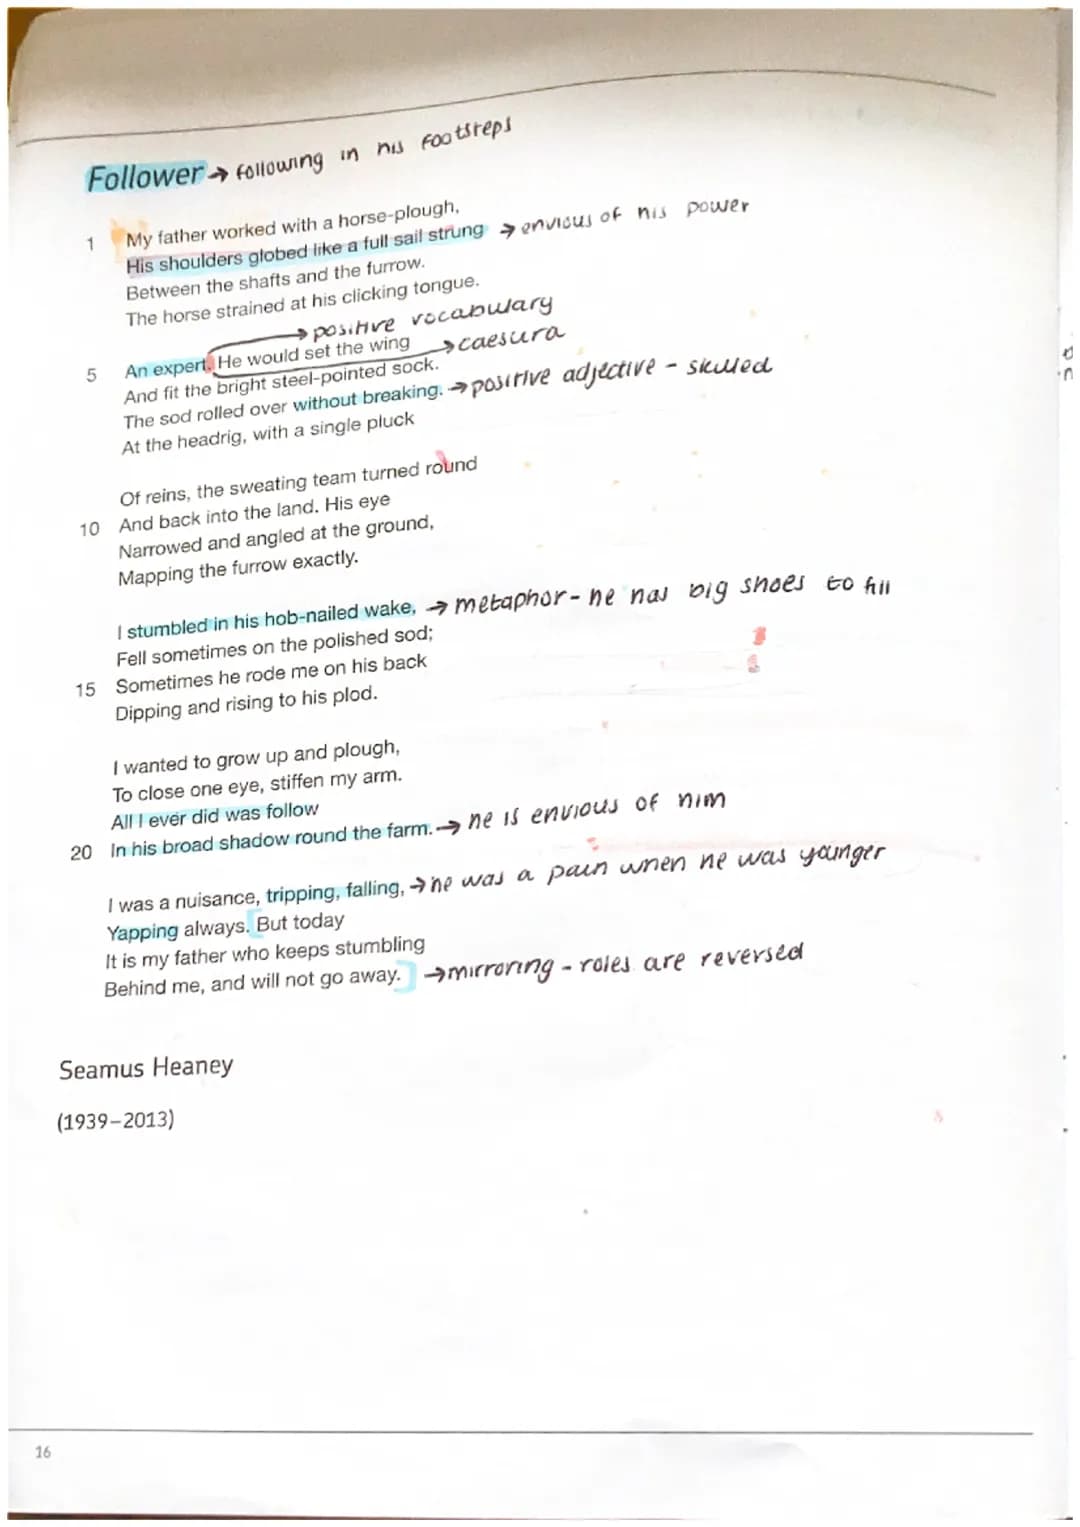 Follower → following in his footsteps
1 My father worked with a horse-plough,
His shoulders globed like a full sail strung → envious of his power
Between the shafts and the furrow.
The horse strained at his clicking tongue.
→ positive vocabulary
5 An expert. He would set the wing → caesura
And fit the bright steel-pointed sock.
The sod rolled over without breaking. → positive adjective - skilled
At the headrig, with a single pluck
Of reins, the sweating team turned round
10 And back into the land. His eye
Narrowed and angled at the ground,
Mapping the furrow exactly.
I stumbled in his hob-nailed wake, → metaphor - he has big shoes to fill
Fell sometimes on the polished sod;
15 Sometimes he rode me on his back
Dipping and rising to his plod.
I wanted to grow up and plough,
To close one eye, stiffen my arm.
All I ever did was follow
20 In his broad shadow round the farm. → he is envious of him
I was a nuisance, tripping, falling, → he was a pain when he was younger
Yapping always. [But today
It is my father who keeps stumbling
Behind me, and will not go away.] → mirroring - roles are reversed
Seamus Heaney
(1939–2013)
16